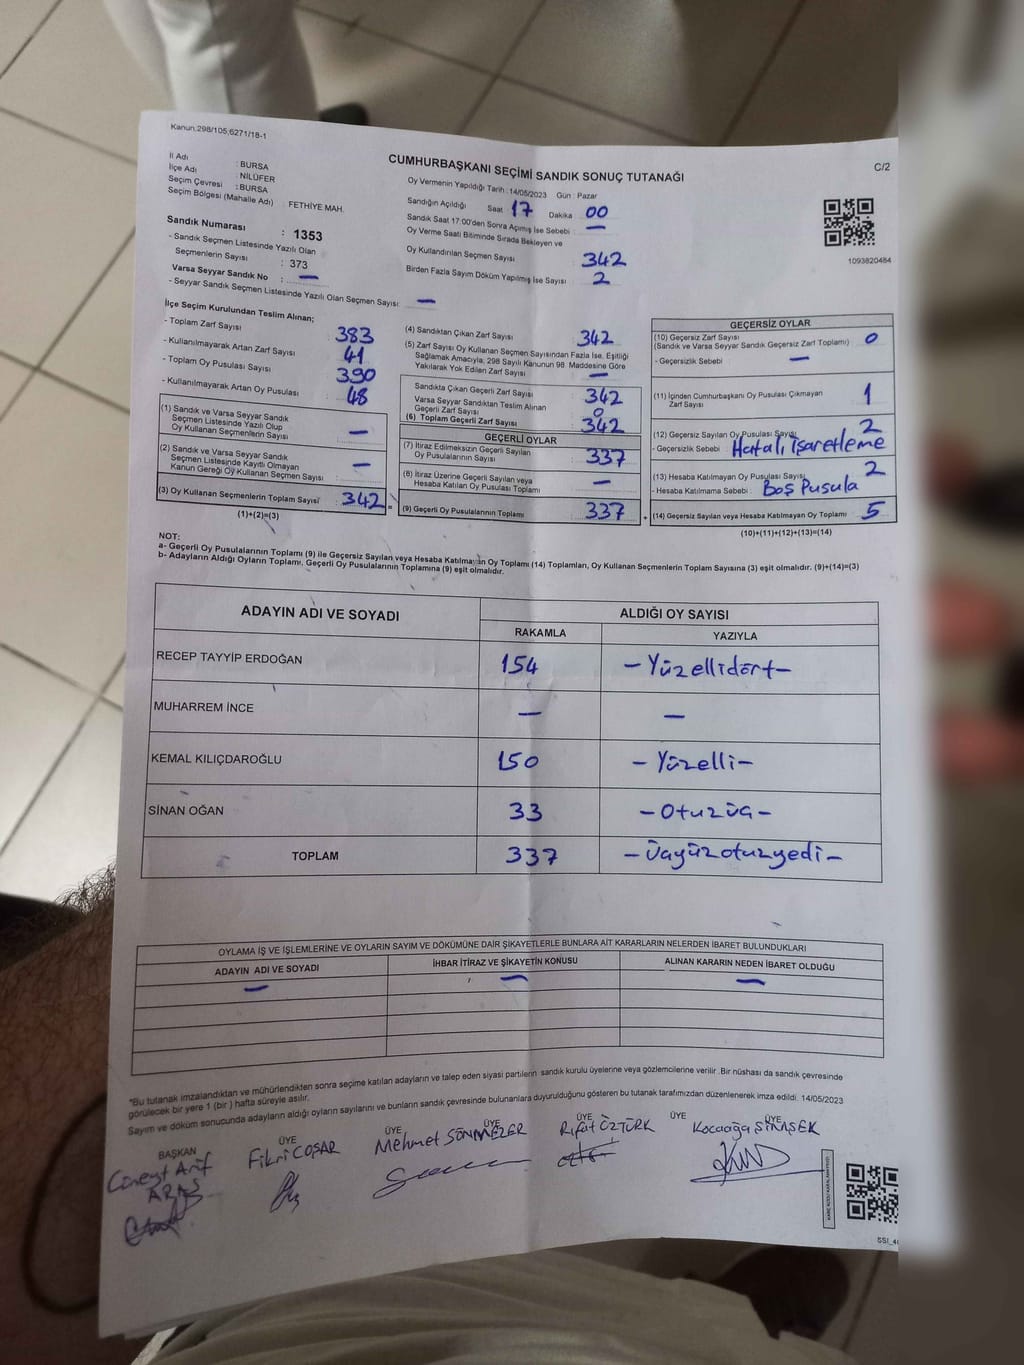 Kanun.298/105,6271/18-1
C/2
CUMHURBAŞKANI SEÇİMİ SANDIK SONUÇ TUTANAĞI
İl Adı : BURSA
İlçe Adı : NİLÜFER
Seçim Çevresi : BURSA
Seçim Bölgesi (Mahalle Adı) : FETHİYE MAH.
Sandık Numarası : 1353
- Sandık Seçmen Listesinde Yazılı Olan
Seçmenlerin Sayısı : 373
Varsa Seyyar Sandık No : —
- Seyyar Sandık Seçmen Listesinde Yazılı Olan Seçmen Sayısı: —
Oy Vermenin Yapıldığı Tarih : 14/05/2023 Gün : Pazar
Sandığın Açıldığı Saat 17 Dakika 00
Sandık Saat 17:00'den Sonra Açılmış İse Sebebi : —
Oy Verme Saati Bitiminde Sırada Bekleyen ve
Oy Kullandırılan Seçmen Sayısı : 342
Birden Fazla Sayım Döküm Yapılmış İse Sayısı : 2
1093820484
İlçe Seçim Kurulundan Teslim Alınan;
- Toplam Zarf Sayısı : 383
- Kullanılmayarak Artan Zarf Sayısı : 41
- Toplam Oy Pusulası Sayısı : 390
- Kullanılmayarak Artan Oy Pusulası : 48
(1) Sandık ve Varsa Seyyar Sandık
Seçmen Listesinde Yazılı Olup
Oy Kullanan Seçmenlerin Sayısı : —
(2) Sandık ve Varsa Seyyar Sandık
Seçmen Listesinde Kayıtlı Olmayan
Kanun Gereği Oy Kullanan Seçmen Sayısı : —
(3) Oy Kullanan Seçmenlerin Toplam Sayısı : 342 =
(1)+(2)=(3)
(4) Sandıktan Çıkan Zarf Sayısı : 342
(5) Zarf Sayısı Oy Kullanan Seçmen Sayısından Fazla İse, Eşitliği
Sağlamak Amacıyla, 298 Sayılı Kanunun 98. Maddesine Göre
Yakılarak Yok Edilen Zarf Sayısı : —
Sandıkta Çıkan Geçerli Zarf Sayısı : 342
Varsa Seyyar Sandıktan Teslim Alınan
Geçerli Zarf Sayısı : 0
(6) Toplam Geçerli Zarf Sayısı : 342
GEÇERLİ OYLAR
(7) İtiraz Edilmeksizin Geçerli Sayılan
Oy Pusulalarının Sayısı : 337
(8) İtiraz Üzerine Geçerli Sayılan veya
Hesaba Katılan Oy Pusulası Toplamı : —
(9) Geçerli Oy Pusulalarının Toplamı : 337 +
GEÇERSİZ OYLAR
(10) Geçersiz Zarf Sayısı : 0
(Sandık ve Varsa Seyyar Sandık Geçersiz Zarf Toplamı)
- Geçersizlik Sebebi : —
(11) İçinden Cumhurbaşkanı Oy Pusulası Çıkmayan
Zarf Sayısı : 1
(12) Geçersiz Sayılan Oy Pusulası Sayısı : 2
- Geçersizlik Sebebi : Hatalı İşaretleme
(13) Hesaba Katılmayan Oy Pusulası Sayısı : 2
- Hesaba Katılmama Sebebi : Boş Pusula
(14) Geçersiz Sayılan veya Hesaba Katılmayan Oy Toplamı : 5
(10)+(11)+(12)+(13)=(14)
NOT:
a- Geçerli Oy Pusulalarının Toplamı (9) ile Geçersiz Sayılan veya Hesaba Katılmayan Oy Toplamı (14) Toplamları, Oy Kullanan Seçmenlerin Toplam Sayısına (3) eşit olmalıdır. (9)+(14)=(3)
b- Adayların Aldığı Oyların Toplamı, Geçerli Oy Pusulalarının Toplamına (9) eşit olmalıdır.
ADAYIN ADI VE SOYADI ALDIĞI OY SAYISI
RAKAMLA YAZIYLA
RECEP TAYYİP ERDOĞAN 154 -Yüzellidört-
MUHARREM İNCE — —
KEMAL KILIÇDAROĞLU 150 -Yüzelli-
SİNAN OĞAN 33 -Otuzüç-
TOPLAM 337 -Üçyüzotuzyedi-
OYLAMA İŞ VE İŞLEMLERİNE VE OYLARIN SAYIM VE DÖKÜMÜNE DAİR ŞİKAYETLERLE BUNLARA AİT KARARLARIN NELERDEN İBARET BULUNDUKLARI
ADAYIN ADI VE SOYADI İHBAR İTİRAZ VE ŞİKAYETİN KONUSU ALINAN KARARIN NEDEN İBARET OLDUĞU
— — —
*Bu tutanak imzalandıktan ve mühürlendikten sonra seçime katılan adayların ve talep eden siyasi partilerin sandık kurulu üyelerine veya gözlemcilerine verilir. Bir nüshası da sandık çevresinde
görülecek bir yere 1 (bir) hafta süreyle asılır.
Sayım ve döküm sonucunda adayların aldığı oyların sayılarını ve bunların sandık çevresinde bulunanlara duyurulduğunu gösteren bu tutanak tarafımızdan düzenlenerek imza edildi. 14/05/2023
BAŞKAN ÜYE ÜYE ÜYE ÜYE ÜYE ÜYE
Cüneyt Arif ARAS
Fikri COŞAR
Mehmet SÖNMEZER
Rıfat ÖZTÜRK
Kocaağa ŞİMŞEK